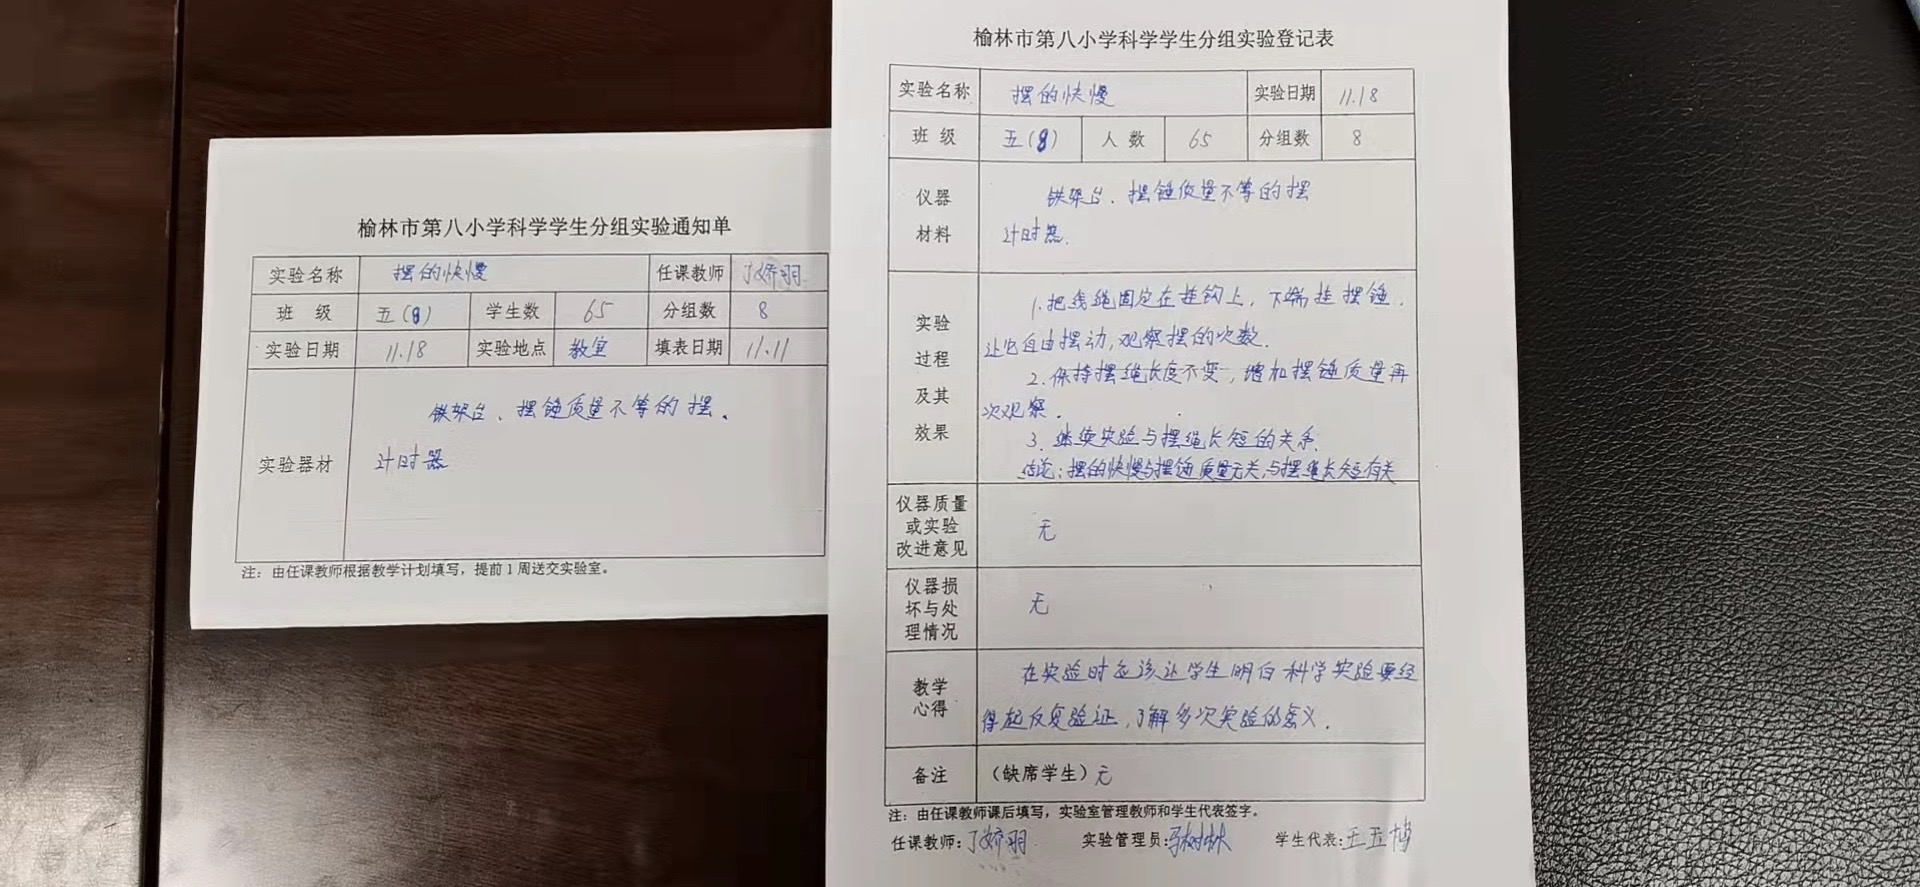 榆林市第八小学科学学生分组实验通知单
实验名称 摆的快慢 任课教师 丁娇羽
班 级 五(8) 学生数 65 分组数 8
实验日期 11.18 实验地点 教室 填表日期 11.11
铁架台、摆锤质量不等的摆、
实验器材 计时器
注：由任课教师根据教学计划填写，提前1周送交实验室。
榆林市第八小学科学学生分组实验登记表
实验名称 摆的快慢 实验日期 11.18
班 级 五(8) 人 数 65 分组数 8
仪器 铁架台、摆锤质量不等的摆
材料 计时器.
实验
过程
及其
效果
1.把线绳固定在挂钩上，下端挂摆锤.
让它自由摆动,观察摆的次数.
2.保持摆绳长度不变,增加摆锤质量再
次观察.
3.继续实验与摆绳长短的关系.
结论:摆的快慢与摆锤质量无关,与摆绳长短有关
仪器质量
或实验
改进意见
无
仪器损
坏与处
理情况
无
教学
心得
在实验时应该让学生明白科学实验要经
得起反复验证,了解多次实验的意义.
备注 （缺席学生）无
注：由任课教师课后填写，实验室管理教师和学生代表签字。
任课教师:丁娇羽 实验管理员: 学生代表: